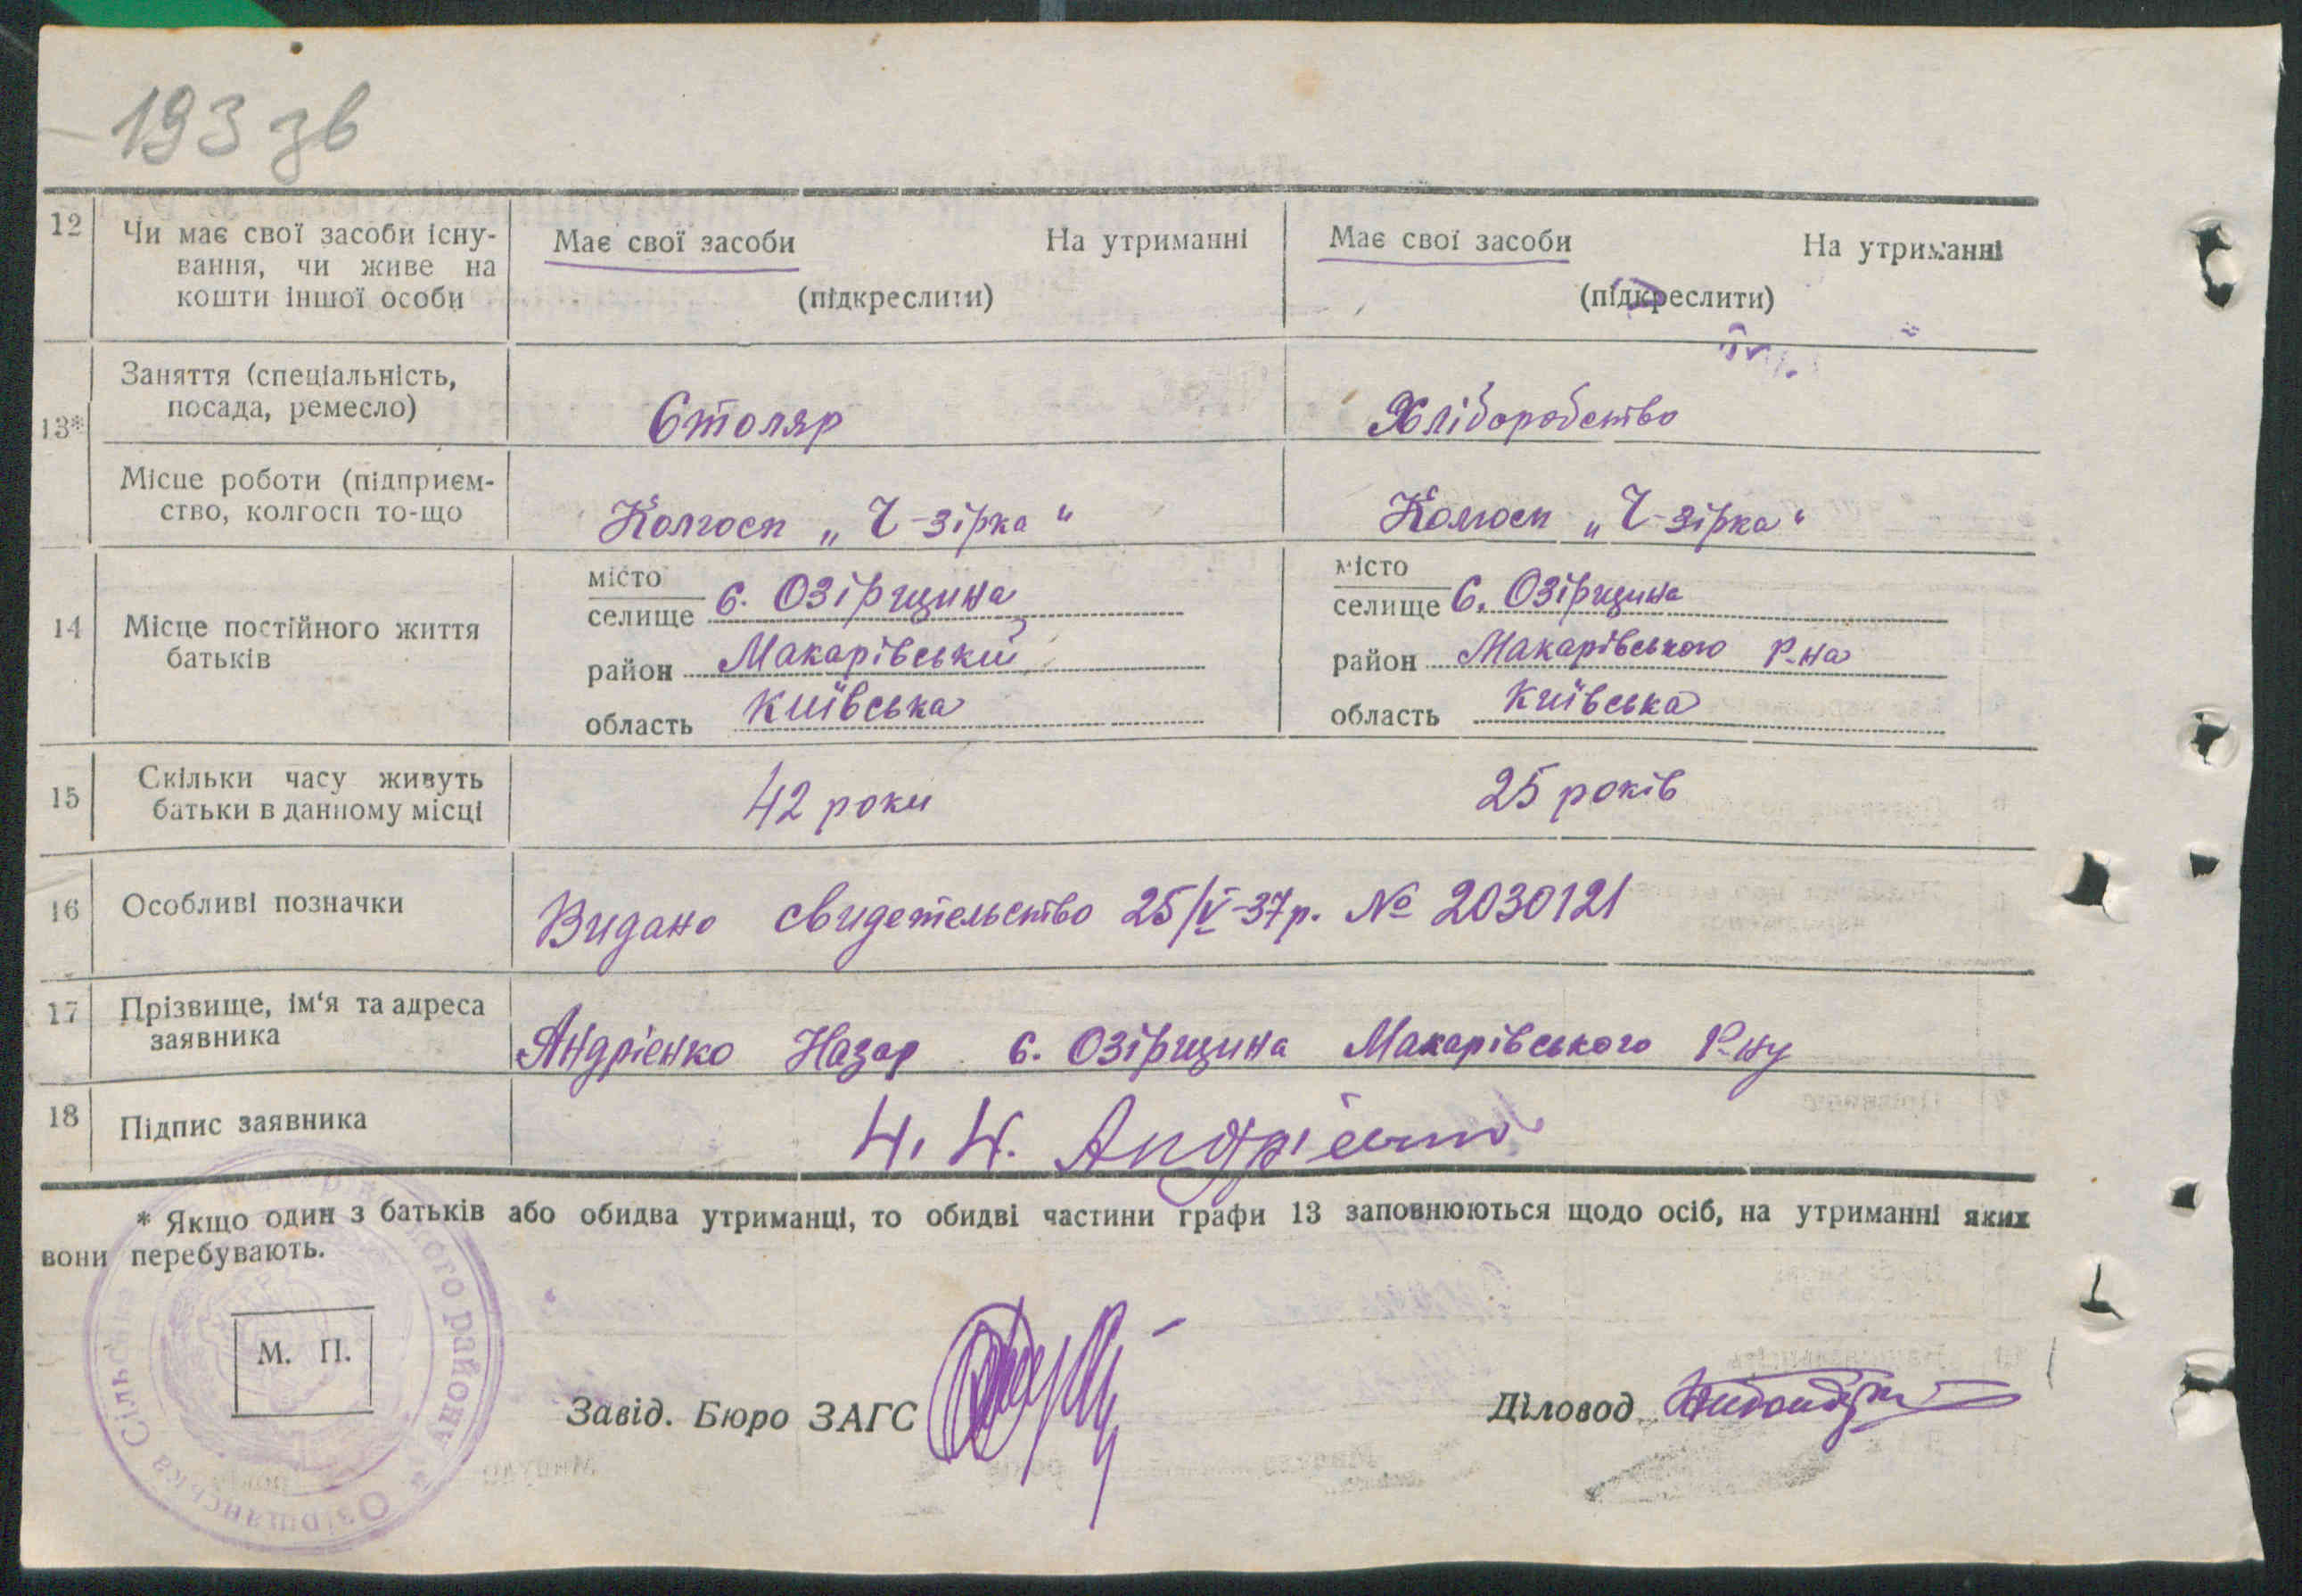 193 зв
12 Чи має свої засоби існу-
вання, чи живе на
кошти іншої особи
Має свої засоби На утриманні
(підкреслити)
Має свої засоби На утриманні
(підкреслити)
13*
Заняття (спеціальність,
посада, ремесло)
Столяр
Хліборобство
Місце роботи (підприєм-
ство, колгосп то-що
Колгосп „Ч-зірка“
Колгосп „Ч-зірка“
14 Місце постійного життя
батьків
місто
селище с. Озірщина
район Макарівський
область Київська
місто
селище с. Озірщина
район Макарівського р-на
область Київська
15 Скільки часу живуть
батьки в данному місці
42 роки
25 років
16 Особливі позначки
Видано свидетельство 25/V-37р. № 2030121
17 Прізвище, ім‘я та адреса
заявника
Андрієнко Назар с. Озірщина Макарівського Р-ну
18 Підпис заявника
Н. Н. Андрієнко
* Якщо один з батьків або обидва утриманці, то обидві частини графи 13 заповнюються щодо осіб, на утриманні яких
вони перебувають.
М. П.
Завід. Бюро ЗАГС
Діловод
Озірщанська Сільська
району